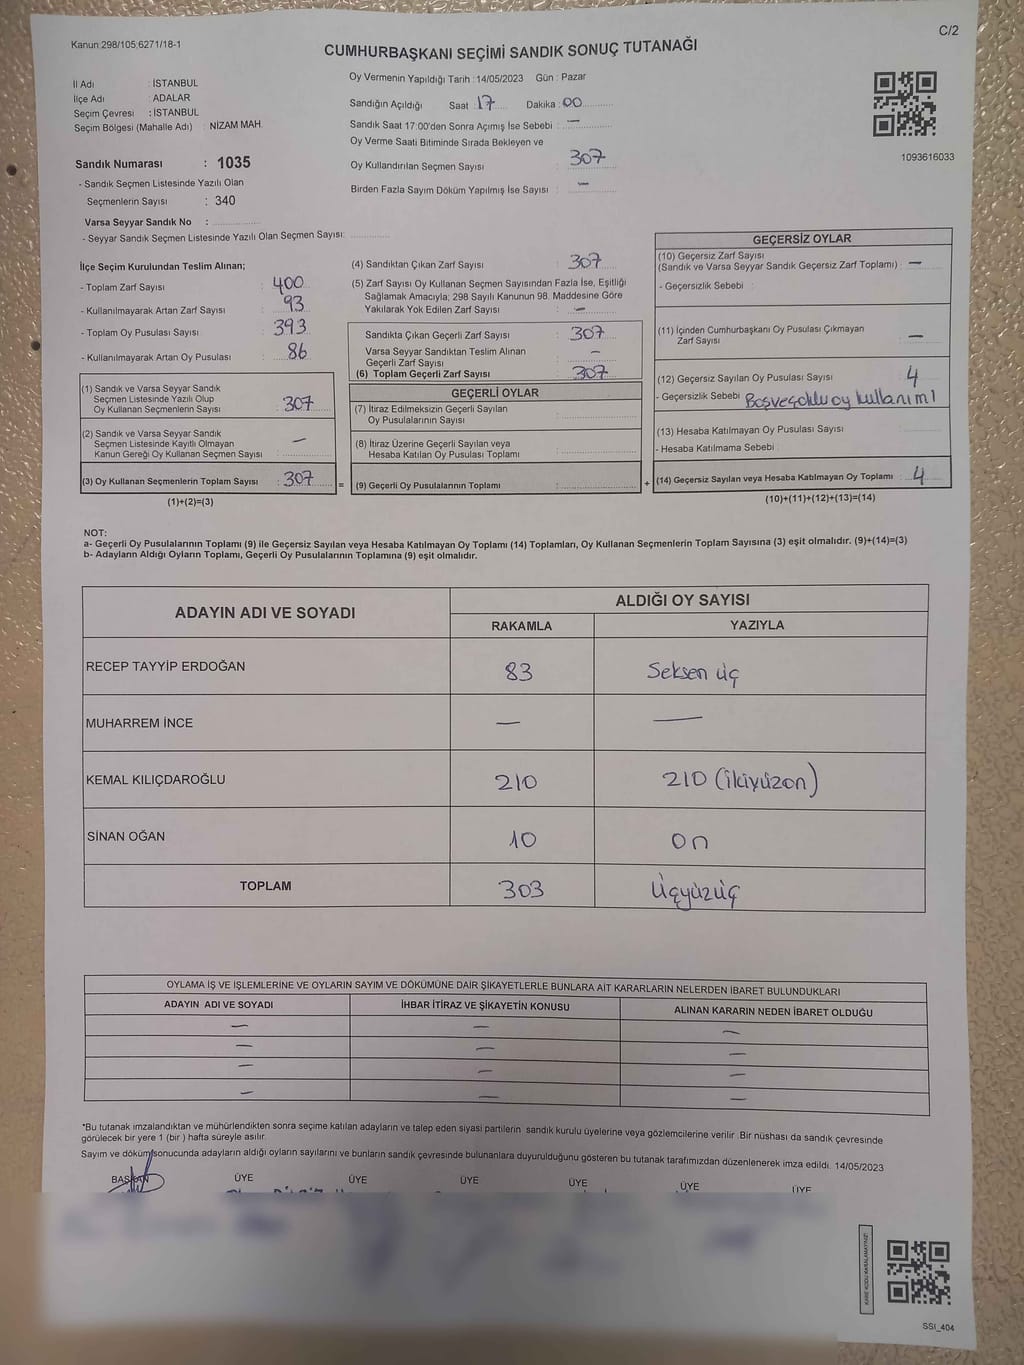 C/2
Kanun:298/105;6271/18-1
CUMHURBAŞKANI SEÇİMİ SANDIK SONUÇ TUTANAĞI
İl Adı : İSTANBUL
İlçe Adı : ADALAR
Seçim Çevresi : İSTANBUL
Seçim Bölgesi (Mahalle Adı) : NİZAM MAH.
Sandık Numarası : 1035
- Sandık Seçmen Listesinde Yazılı Olan
Seçmenlerin Sayısı : 340
Varsa Seyyar Sandık No :
- Seyyar Sandık Seçmen Listesinde Yazılı Olan Seçmen Sayısı:
Oy Vermenin Yapıldığı Tarih : 14/05/2023 Gün : Pazar
Sandığın Açıldığı Saat : 17 Dakika : 00
Sandık Saat 17:00'den Sonra Açımış İse Sebebi : —
Oy Verme Saati Bitiminde Sırada Bekleyen ve
Oy Kullandırılan Seçmen Sayısı : 307
Birden Fazla Sayım Döküm Yapılmış İse Sayısı : —
1093616033
İlçe Seçim Kurulundan Teslim Alınan;
- Toplam Zarf Sayısı : 400
- Kullanılmayarak Artan Zarf Sayısı : 93
- Toplam Oy Pusulası Sayısı : 393
- Kullanılmayarak Artan Oy Pusulası : 86
(1) Sandık ve Varsa Seyyar Sandık
Seçmen Listesinde Yazılı Olup
Oy Kullanan Seçmenlerin Sayısı : 307
(2) Sandık ve Varsa Seyyar Sandık
Seçmen Listesinde Kayıtlı Olmayan
Kanun Gereği Oy Kullanan Seçmen Sayısı : —
(3) Oy Kullanan Seçmenlerin Toplam Sayısı : 307
(1)+(2)=(3)
(4) Sandıktan Çıkan Zarf Sayısı : 307
(5) Zarf Sayısı Oy Kullanan Seçmen Sayısından Fazla İse, Eşitliği
Sağlamak Amacıyla; 298 Sayılı Kanunun 98. Maddesine Göre
Yakılarak Yok Edilen Zarf Sayısı : —
Sandıkta Çıkan Geçerli Zarf Sayısı : 307
Varsa Seyyar Sandıktan Teslim Alınan
Geçerli Zarf Sayısı : —
(6) Toplam Geçerli Zarf Sayısı : 307
GEÇERLİ OYLAR
(7) İtiraz Edilmeksizin Geçerli Sayılan
Oy Pusulalarının Sayısı :
(8) İtiraz Üzerine Geçerli Sayılan veya
Hesaba Katılan Oy Pusulası Toplamı :
= (9) Geçerli Oy Pusulalarının Toplamı :
GEÇERSİZ OYLAR
(10) Geçersiz Zarf Sayısı
(Sandık ve Varsa Seyyar Sandık Geçersiz Zarf Toplamı) : —
- Geçersizlik Sebebi :
(11) İçinden Cumhurbaşkanı Oy Pusulası Çıkmayan
Zarf Sayısı : —
(12) Geçersiz Sayılan Oy Pusulası Sayısı : 4
- Geçersizlik Sebebi : Boşveçoklu oy kullanımı
(13) Hesaba Katılmayan Oy Pusulası Sayısı :
- Hesaba Katılmama Sebebi :
+ (14) Geçersiz Sayılan veya Hesaba Katılmayan Oy Toplamı : 4
(10)+(11)+(12)+(13)=(14)
NOT:
a- Geçerli Oy Pusulalarının Toplamı (9) ile Geçersiz Sayılan veya Hesaba Katılmayan Oy Toplamı (14) Toplamları, Oy Kullanan Seçmenlerin Toplam Sayısına (3) eşit olmalıdır. (9)+(14)=(3)
b- Adayların Aldığı Oyların Toplamı, Geçerli Oy Pusulalarının Toplamına (9) eşit olmalıdır.
ADAYIN ADI VE SOYADI ALDIĞI OY SAYISI
RAKAMLA YAZIYLA
RECEP TAYYİP ERDOĞAN 83 Seksen üç
MUHARREM İNCE — —
KEMAL KILIÇDAROĞLU 210 210 (İkiyüzon)
SİNAN OĞAN 10 on
TOPLAM 303 üçyüzüç
OYLAMA İŞ VE İŞLEMLERİNE VE OYLARIN SAYIM VE DÖKÜMÜNE DAİR ŞİKAYETLERLE BUNLARA AİT KARARLARIN NELERDEN İBARET BULUNDUKLARI
ADAYIN ADI VE SOYADI İHBAR İTİRAZ VE ŞİKAYETİN KONUSU ALINAN KARARIN NEDEN İBARET OLDUĞU
— — —
— — —
— — —
— — —
*Bu tutanak imzalandıktan ve mühürlendikten sonra seçime katılan adayların ve talep eden siyasi partilerin sandık kurulu üyelerine veya gözlemcilerine verilir .Bir nüshası da sandık çevresinde
görülecek bir yere 1 (bir ) hafta süreyle asılır.
Sayım ve döküm sonucunda adayların aldığı oyların sayılarını ve bunların sandık çevresinde bulunanlara duyurulduğunu gösteren bu tutanak tarafımızdan düzenlenerek imza edildi. 14/05/2023
BAŞKAN ÜYE ÜYE ÜYE ÜYE ÜYE ÜYE
KARE KODU KARALAMAYINIZ!
SSI_404